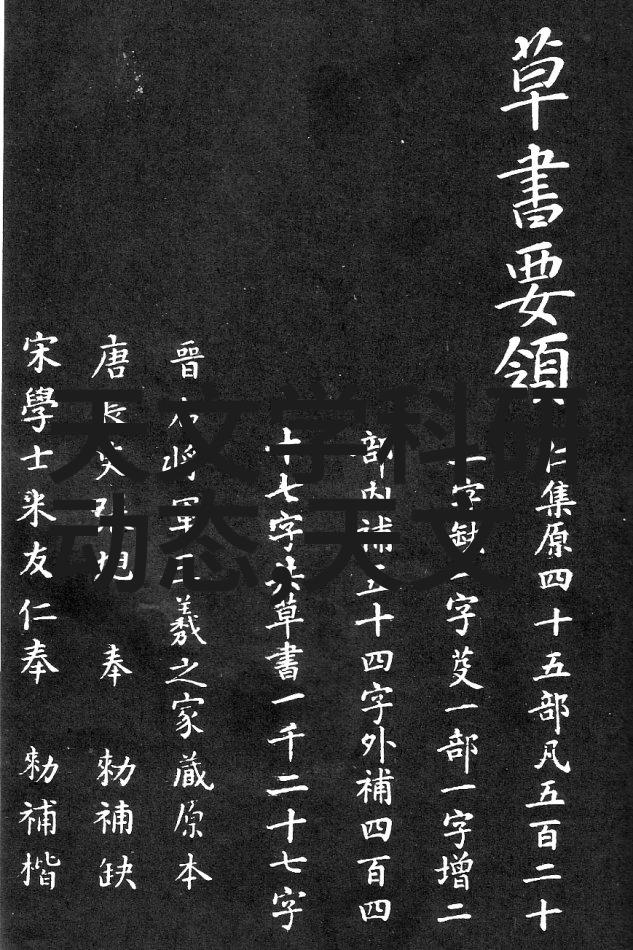 草書要領
仁集原四十五部凡五百二十
一字缺一字芟一部一字增二
部内補五十四字外補四百四
十七字共草書一千二十七字
晉右將軍王羲之家藏原本
唐長史張旭 奉 勅補缺
宋學士米友仁奉 勅補楷
天文学科研
动态 天文